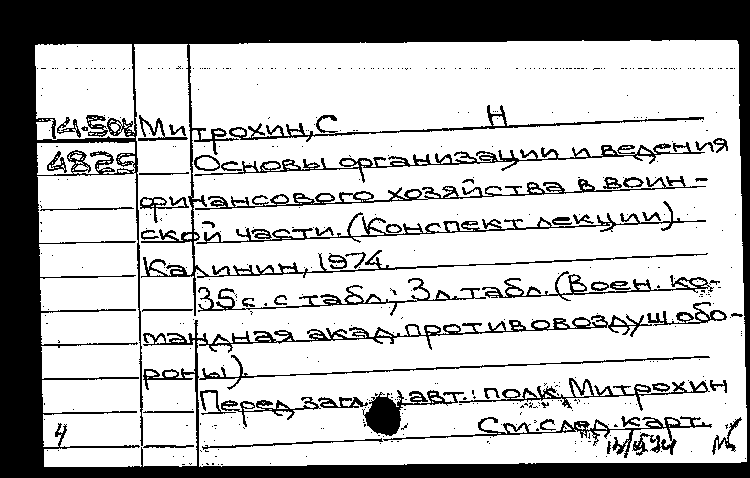 74-50к Митрохин, С Н
4825 Основы организации и ведения
финансового хозяйства в воин-
ской части. (Конспект лекции).
Калинин, 1974.
35 с. с табл.; 3 л. табл. (Воен. ко-
мандная акад. противовоздуш. обо-
роны).
Перед загл. авт.: полк. Митрохин
См. след. карт.
4